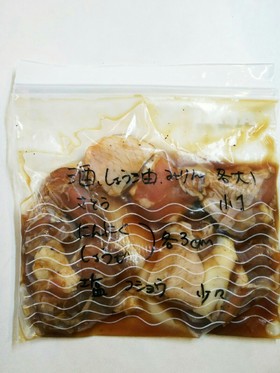 酒、しょうゆ油、みりん 各大1
さとう 小1
にんにく
しょうが 各3cm
塩 コショウ 少々